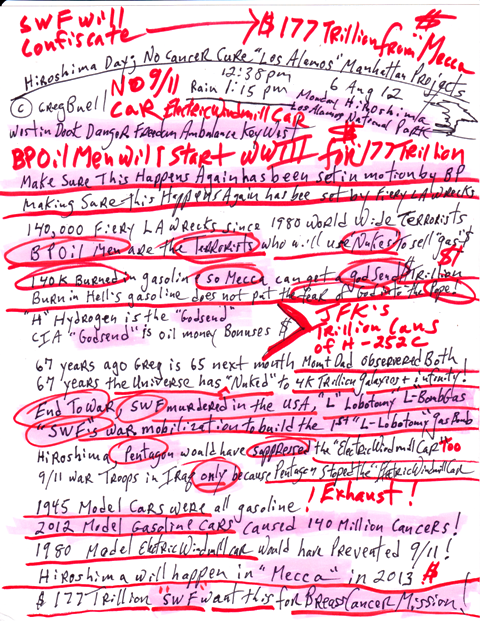 SWF will Confiscate → $177 Trillion from "Mecca $
Hiroshima Day; No Cancer Cure "Los Alamos" Manhattan Projects
12:38 pm
NO 9/11 Rain 1:15 pm 6 Aug 12
© Greg Buell Car ElectricWindmillCar Monday Hiroshima
Los Alamos National Park
West in Dock Danger Freedom Ambulance Key West $
BP Oil Men will Start WW III for 177 Trillion
Make Sure This Happens Again has been set in motion by BP
Making Sure This Happens Again has bee set by Fiery LA Wrecks
140,000 Fiery LA Wrecks since 1980 World Wide Terrorists
BP Oil Men are the terrorists who will use "Nukes" to sell "gas" $
140K Burned in gasoline so Mecca can get a god send $1 Trillion
Burn in Hell's gasoline does not put the fear of God into the Pope!
"H" Hydrogen is the "Godsend" JFK's
CIA "Godsend" is oil money Bonuses $ Trillion Cans of H -252C
67 years ago Greg is 65 next month Mom + Dad observered Both!
67 years the Universe has "Nuked" to 4K Trillion Galaxies + infinity!
End To War, SWF murdered in the USA, "L" Lobotomy L-Bomb Gas
"SWF's" war mobilization to build the 1st "L-Lobotomy" gas Bomb
Hiroshima Pentagon would have suppressed the "ElectricWindmillCar" too
9/11 War Troops in Iraq only because Pentagon Stoped the ElectricWindmillCar
1945 Model Cars were all gasoline! Exhaust!
2012 Model Gasoline Cars caused 140 Million Cancers!
1980 Model ElectricWindmillcar would have Prevented 9/11!
Hiroshima will happen in "Mecca" in 2013 $
$177 Trillion "SWF" want this for Breast Cancer Mission!